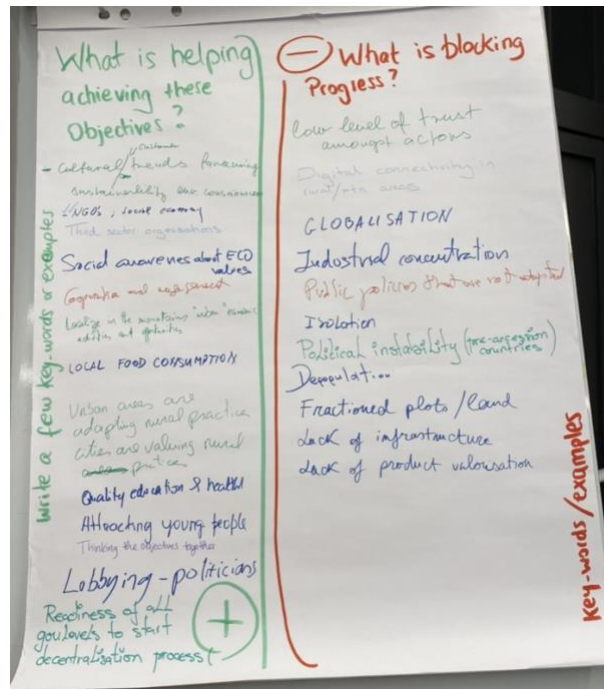 What is helping
achieving these
Objectives?
customer
- Cultural/trends favouring
sustainability
NGOs, social economy
Third sector organisations
Social awarenes about ECO
values
Cooperation and engagement
Localize in the mountains "urban" economic
activities and
LOCAL FOOD CONSUMPTION
Urban areas are
adapting rural practice
cities are valuing rural
practices
Quality education & health
Attracting young people
Thinking the objectives together
Lobbying - politicians
Readiness of all
gov levels to start
decentralisation process!
+
Write a few key-words or examples
- What is blocking
Progress?
low level of trust
amongst actors
Digital connectivity in
rural/mtn areas
GLOBALISATION
Industrial concentration
Public policies that are not adapted
Isolation
Political instability (pre-accession
countries)
Depopulation
Fractioned plots / land
Lack of infrastructure
Lack of product valorisation
Key-words/examples